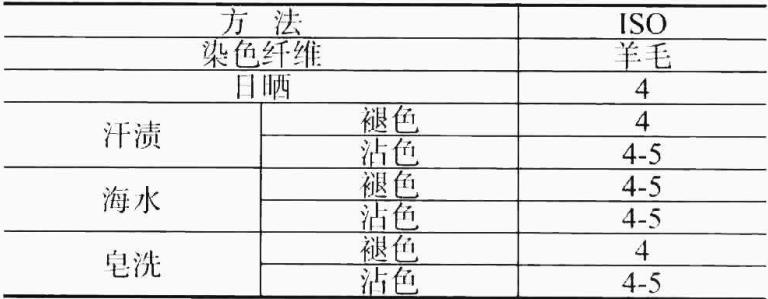 方 法 ISO
染色纤维 羊毛
日晒 4
汗渍 褪色 4
沾色 4-5
海水 褪色 4-5
沾色 4-5
皂洗 褪色 4
沾色 4-5